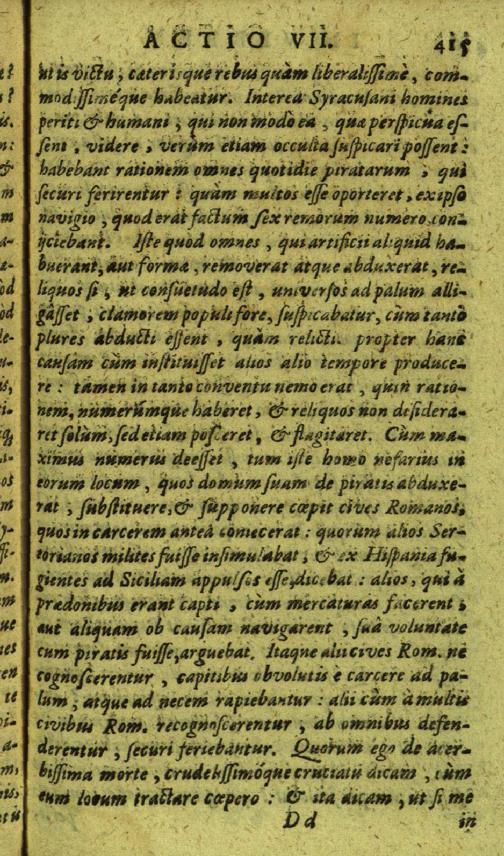 ACTIO VII. 415
ut is victu, cæterisque rebus quàm liberalissimè, com-
modissiméque habeatur. Interea Syracusani homines
periti & humani, qui non modò ea, quæ perspicua es-
sent, videre, verùm etiam occulta suspicari possent:
habebant rationem omnes quotidie piratarum, qui
securi ferirentur: quàm multos esse oporteret, ex ipso
navigio, quod erat factum sex remorum numero con-
ijciebant. Iste quòd omnes, qui artificii aliquid ha-
buerant, aut formæ, removerat atque abduxerat, re-
liquos si, ut consuetudo est, universos ad palum alli-
gâsset, clamorem populi fore, suspicabatur, cùm tantò
plures abducti essent, quàm relicti. propter hanc
causam cùm instituisset alios alio tempore produce-
re: tamen in tanto conventu nemo erat, quin ratio-
nem, numerúmque haberet, & reliquos non desidera-
ret solùm, sed etiam posceret, & flagitaret. Cùm ma-
ximus numerus deesset, tum iste homo nefarius in
eorum locum, quos domum suam de piratis abduxe-
rat, substituere, & supponere cœpit cives Romanos,
quos in carcerem anteà conjecerat: quorum alios Ser-
torianos milites fuisse insimulabat, & ex Hispania fu-
gientes ad Siciliam appulsos esse, dicebat: alios, qui à
prædonibus erant capti, cùm mercaturas facerent,
aut aliquam ob causam navigarent, suâ voluntate
cum piratis fuisse, arguebat. Itaque alii cives Rom. ne
cognoscerentur, capitibus obvolutis è carcere ad pa-
lum, atque ad necem rapiebantur: alii cùm à multis
civibus Rom. recognoscerentur, ab omnibus defen-
derentur, securi feriebantur. Quorum ego de acer-
bissima morte, crudelissimóque cruciatu dicam, cùm
eum locum tractare cœpero: & ita dicam, ut si me
D d in